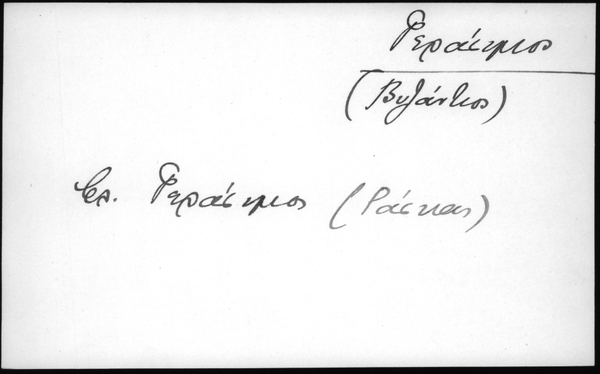 Γεράσιμος
(Βυζάντιος)
βλ. Γεράσιμος (Ράσκας)